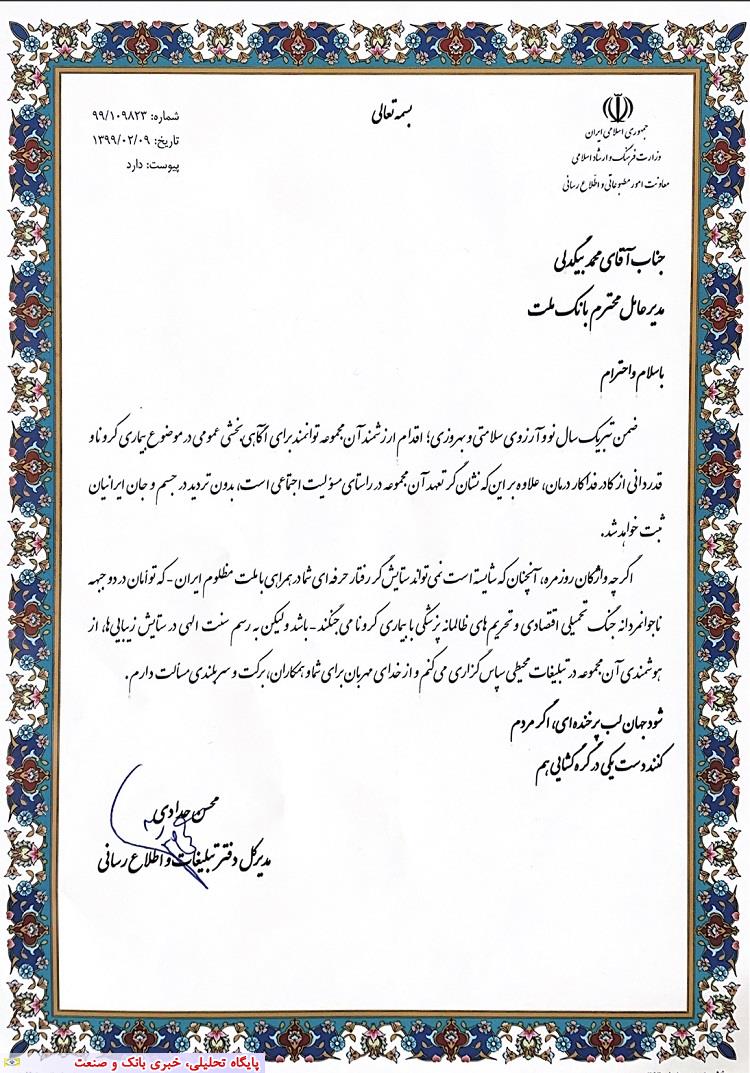 بسمه تعالی
جمهوری اسلامی ایران
وزارت فرهنگ و ارشاد اسلامی
معاونت امور مطبوعاتی و اطلاع رسانی
شماره: ۹۹/۱۰۹۸۲۳
تاریخ: ۱۳۹۹/۰۲/۰۹
پیوست: دارد
جناب آقای محمد بیگدلی
مدیر عامل محترم بانک ملت
با سلام و احترام
ضمن تبریک سال نو و آرزوی سلامتی و بهروزی؛ اقدام ارزشمند آن مجموعه توانمند برای آگاهی بخشی عمومی در موضوع بیماری کرونا و
قدردانی از کادر فداکار درمان، علاوه بر این که نشان گر تعهد آن مجموعه در راستای مسؤلیت اجتماعی است، بدون تردید در جسم و جان ایرانیان
ثبت خواهد شد.
اگر چه واژگان روزمره، آنچنان که شایسته است نمی تواند ستایش گر رفتار حرفه ای شما در همراهی با ملت مظلوم ایران - که توأمان در دو جبهه
ناجوانمردانه جنگ تحمیلی اقتصادی و تحریم های ظالمانه پزشکی با بیماری کرونا می جنگند - باشد ولیکن به رسم سنت الهی در ستایش زیبایی ها، از
هوشمندی آن مجموعه در تبلیغات محیطی سپاس گزاری می کنم و از خدای مهربان برای شما و همکاران، برکت و سربلندی مسألت دارم.
شود جهان لب پرخنده ای، اگر مردم
کنند دست یکی در گره گشایی هم
محسن حدادی
مدیرکل دفتر تبلیغات و اطلاع رسانی
پایگاه تحلیلی، خبری بانک و صنعت